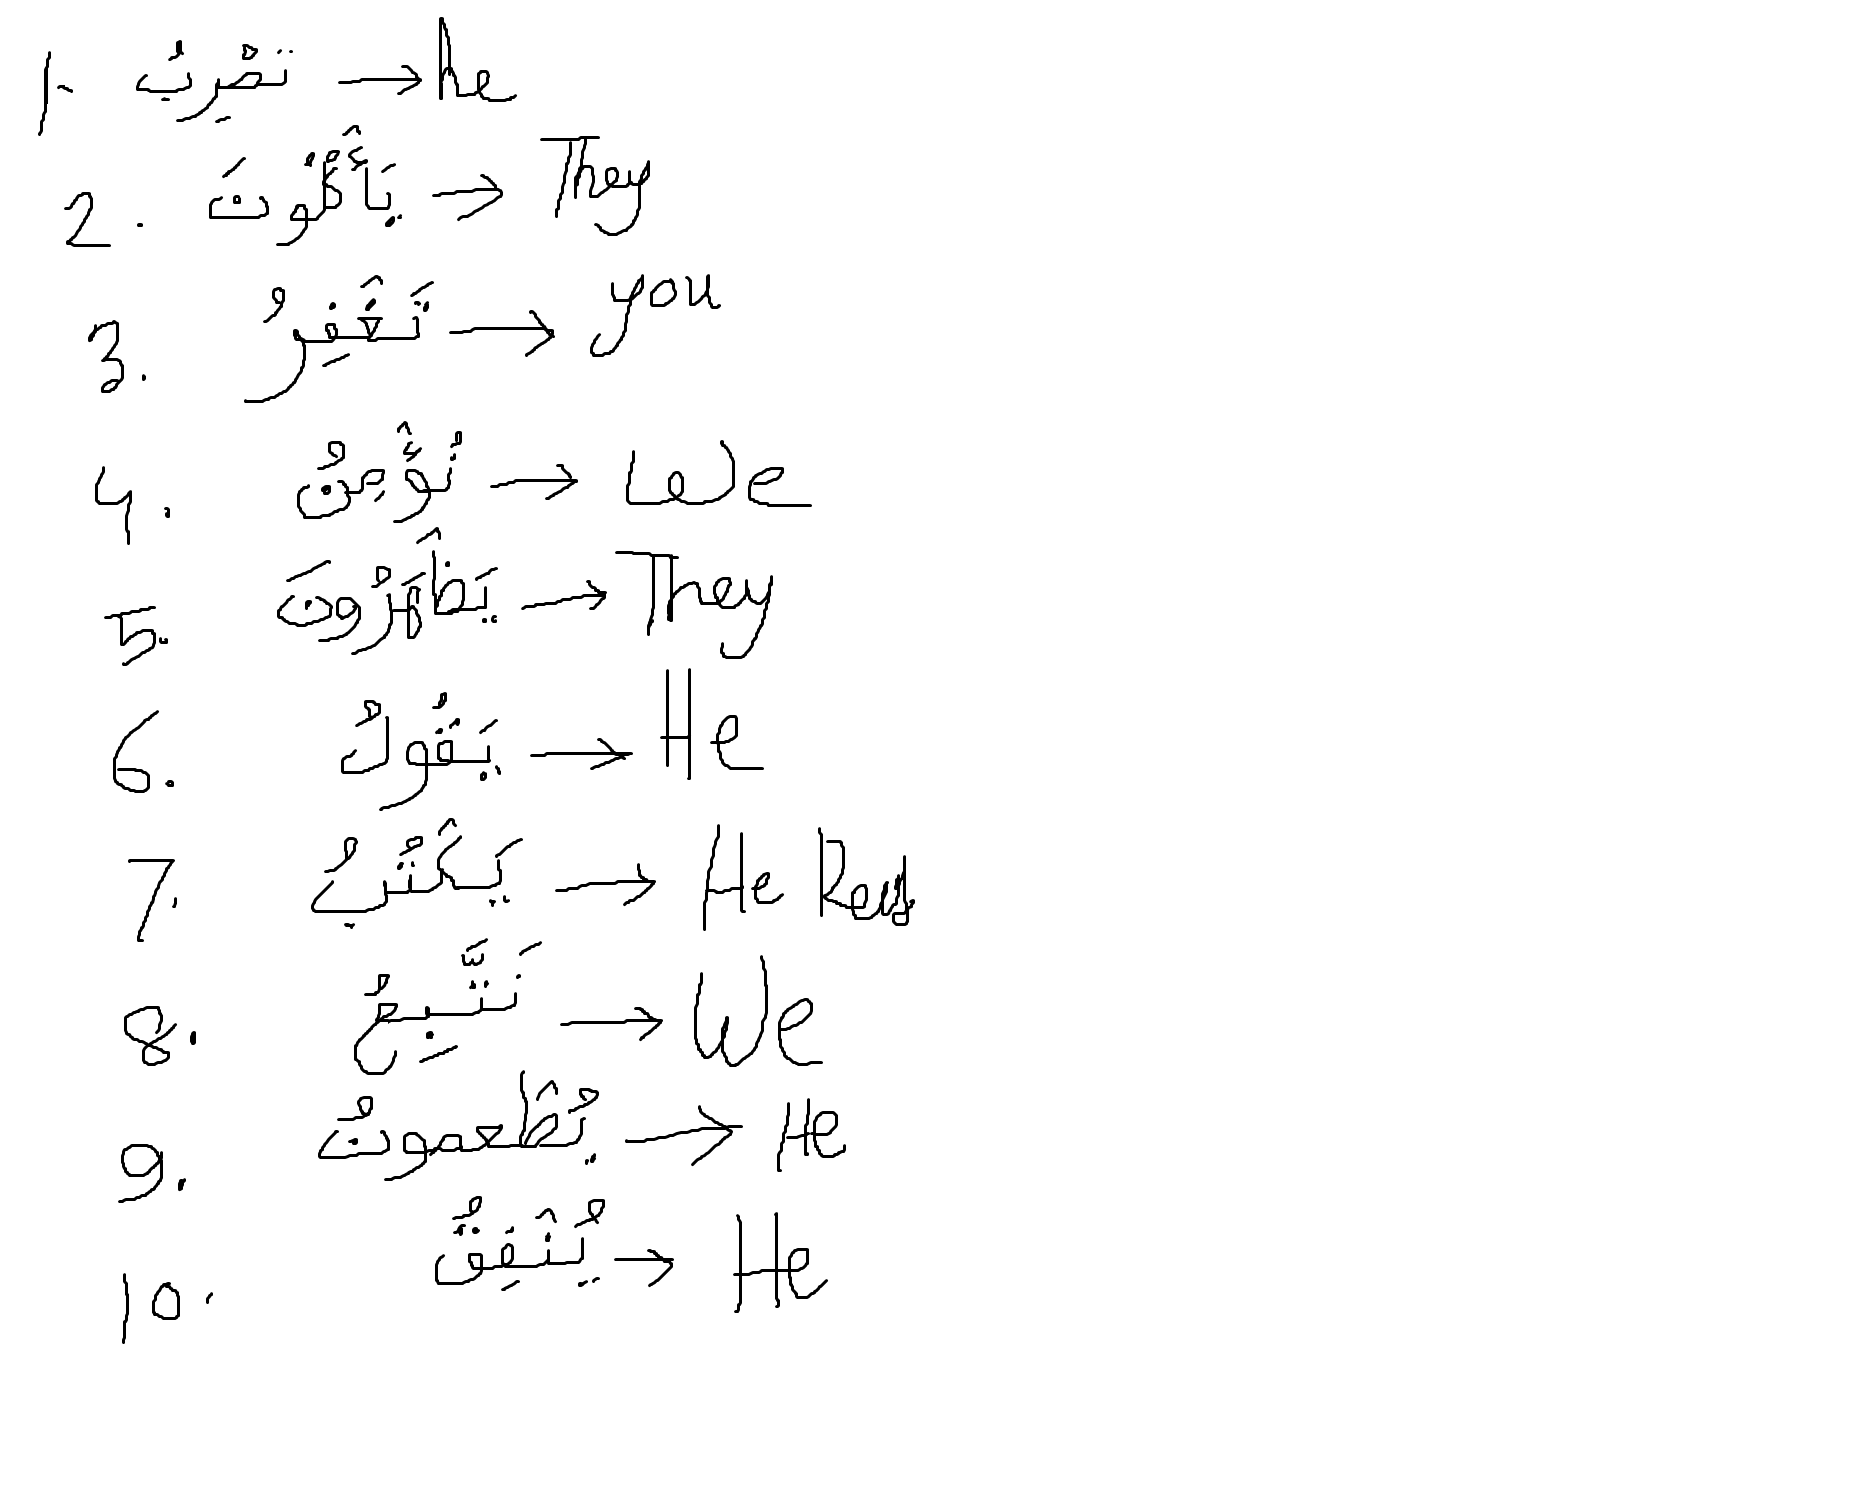 1. تضْرِبُ → he
2. يَأْكُلُونَ → They
3. تَغْفِرُ → you
4. نُؤْمِنُ → We
5. يَظْهَرُونَ → They
6. يَقُولُ → He
7. يَكْتُبُ → He Read
8. نَتَّبِعُ → We
9. يُطْعمونُ → He
10. يُنْفِقُ → He